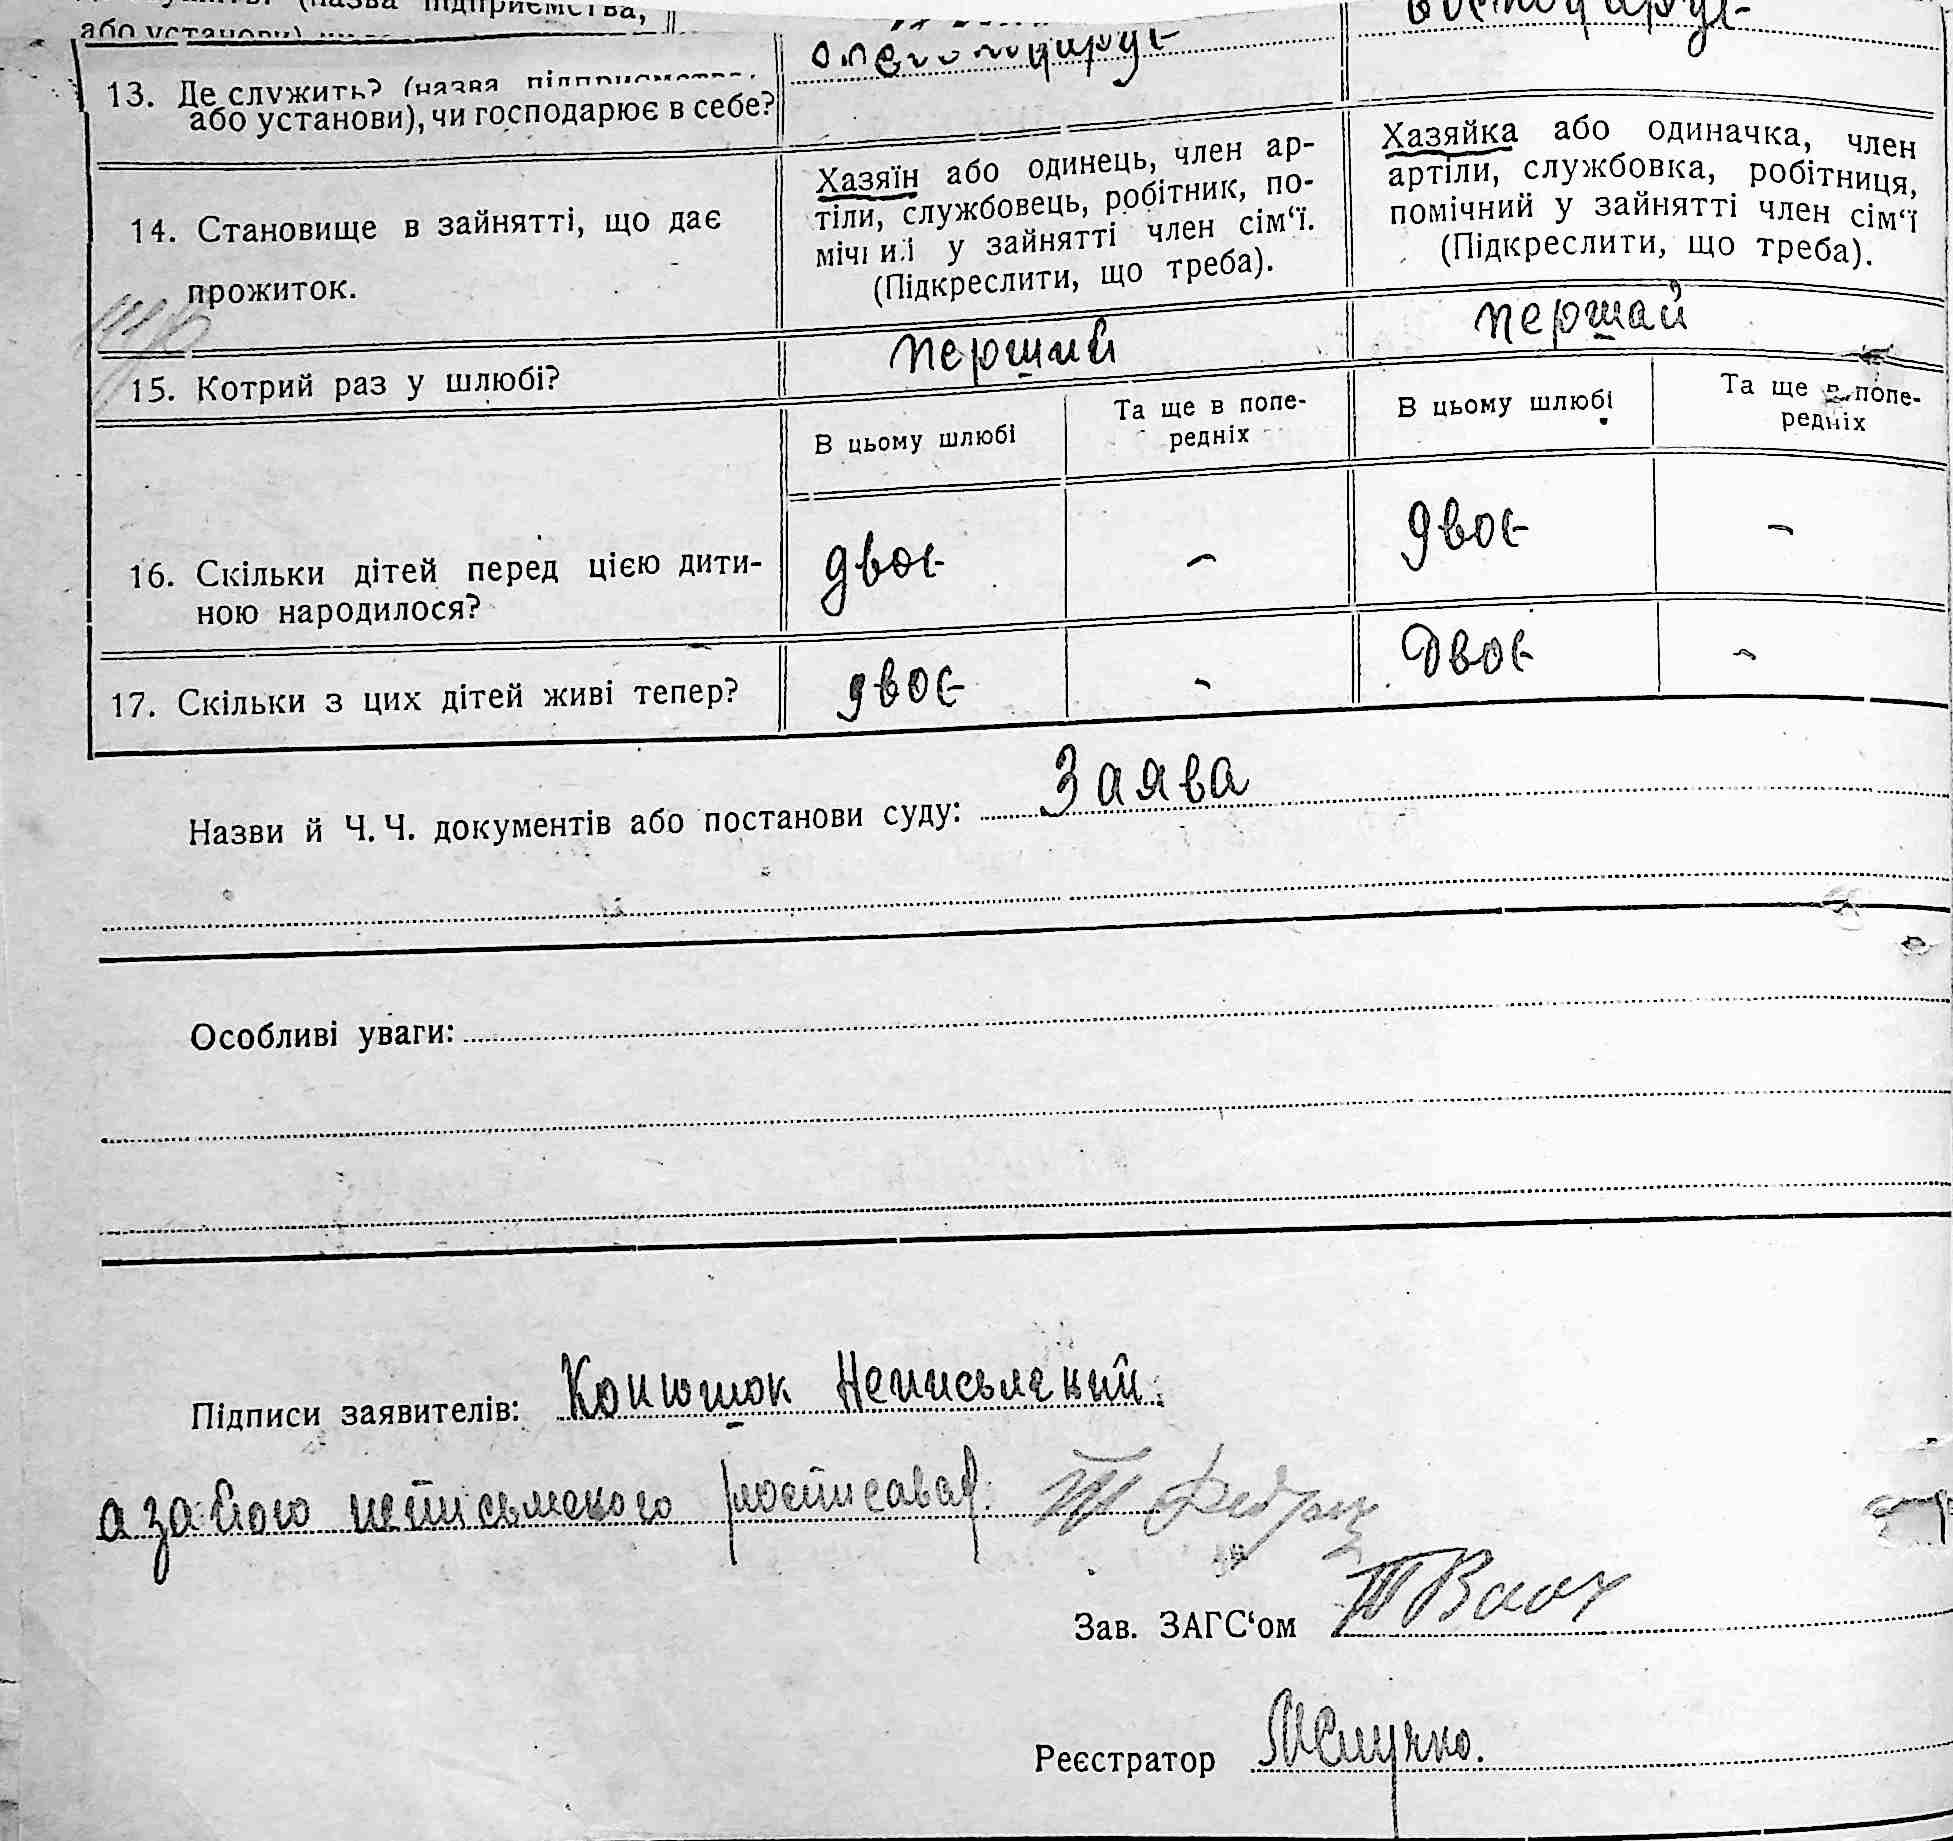 (назва підприємства,
або установи)
13. Де служить? (назва підприємства,
або установи), чи господарює в себе?
14. Становище в зайнятті, що дає
прожиток.
Хазяїн або одинець, член ар-
тіли, службовець, робітник, по-
мічний у зайнятті член сім‘ї.
(Підкреслити, що треба).
Хазяйка або одиначка, член
артіли, службовка, робітниця,
помічний у зайнятті член сім‘ї
(Підкреслити, що треба).
15. Котрий раз у шлюбі?
перший
першай
В цьому шлюбі
Та ще в попе-
редніх
В цьому шлюбі
Та ще в попе-
редніх
16. Скільки дітей перед цією дити-
ною народилося?
двоє
-
двоє
-
17. Скільки з цих дітей живі тепер?
двоє
-
Двоє
-
Назви й Ч. Ч. документів або постанови суду: Заява
Особливі уваги:
Підписи заявителів: Конюшок Неписьмекий.
а за його неписьмекого росписавсь
Зав. ЗАГС‘ом
Реєстратор